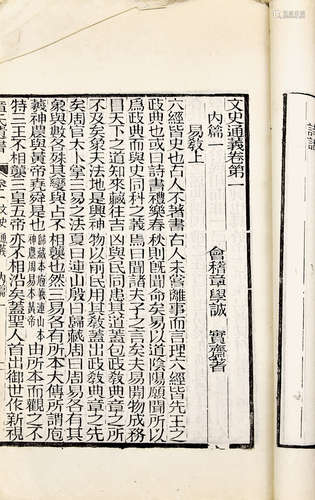 文史通義卷第一
會稽章學誠 實齋著
內篇一
易教上
六經皆史也古人不著書古人未嘗離事而言理六經皆先王之
政典也或曰詩書禮樂春秋則既聞命矣易以道陰陽願聞所以
為政典而與史同科之義焉曰聞諸夫子之言矣夫易開物成務
冒天下之道知來藏往吉凶與民同患其道蓋包政教典章之所
不及矣象天法地是興神物以前民用其教蓋出政教典章之先
矣周官太卜掌三易之法夏曰連山殷曰歸藏周曰周易各有其
象與數各殊其變與占不相襲也然三易各有所本大傳所謂庖
羲神農與黃帝堯舜是也歸藏本庖羲連山本神農周易本黃帝由所本而觀之不
特三王不相襲三皇五帝亦不相沿矣蓋聖人首出御世作新視
章氏遺書 卷一 文史通義 內篇一